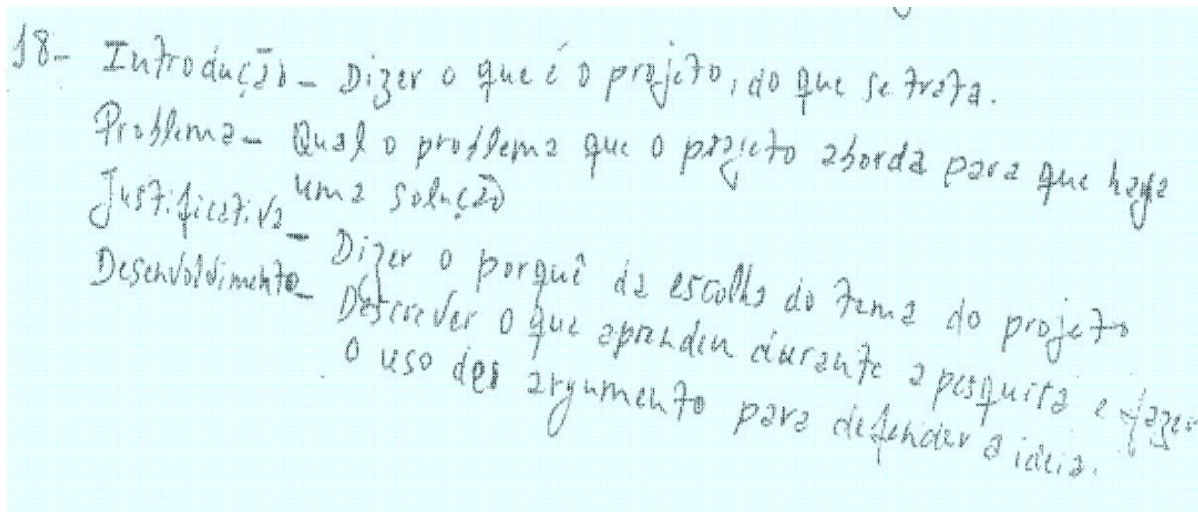 18- Introdução - Dizer o que é o projeto, do que se trata.
Problema - Qual o problema que o projeto aborda para que haja
uma solução
Justificativa - Dizer o porquê da escolha do tema do projeto
Desenvolvimento - Descrever o que aprendeu durante a pesquisa e fazer
o uso de argumento para defender a ideia.